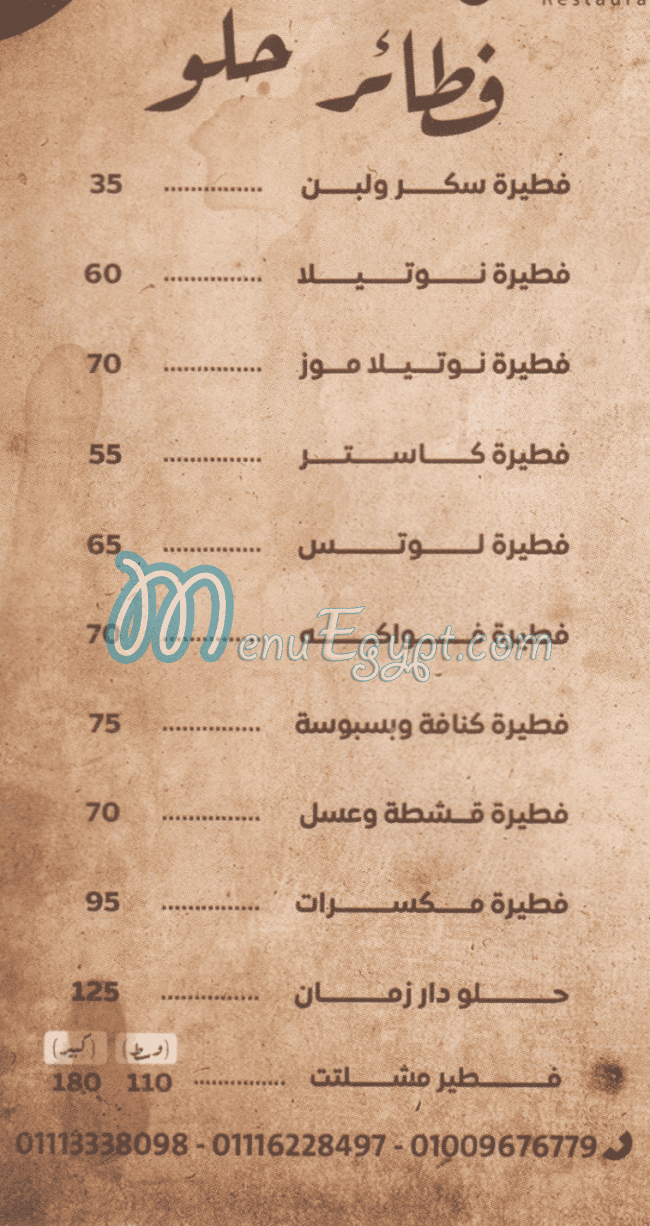 Restaura
فطائر حلو
فطيرة سكر ولبن ............... 35
فطيرة نوتيلا ............... 60
فطيرة نوتيلا موز ............... 70
فطيرة كاستر ............... 55
فطيرة لوتس ............... 65
فطيرة فواكه ............... 70
MenuEgypt.com
فطيرة كنافة وبسبوسة ............... 75
فطيرة قشطة وعسل ............... 70
فطيرة مكسرات ............... 95
حلو دار زمان ............... 125
(وسط) (كبير)
فطير مشلتت ............... 110 180
01113338098 - 01116228497 - 01009676779